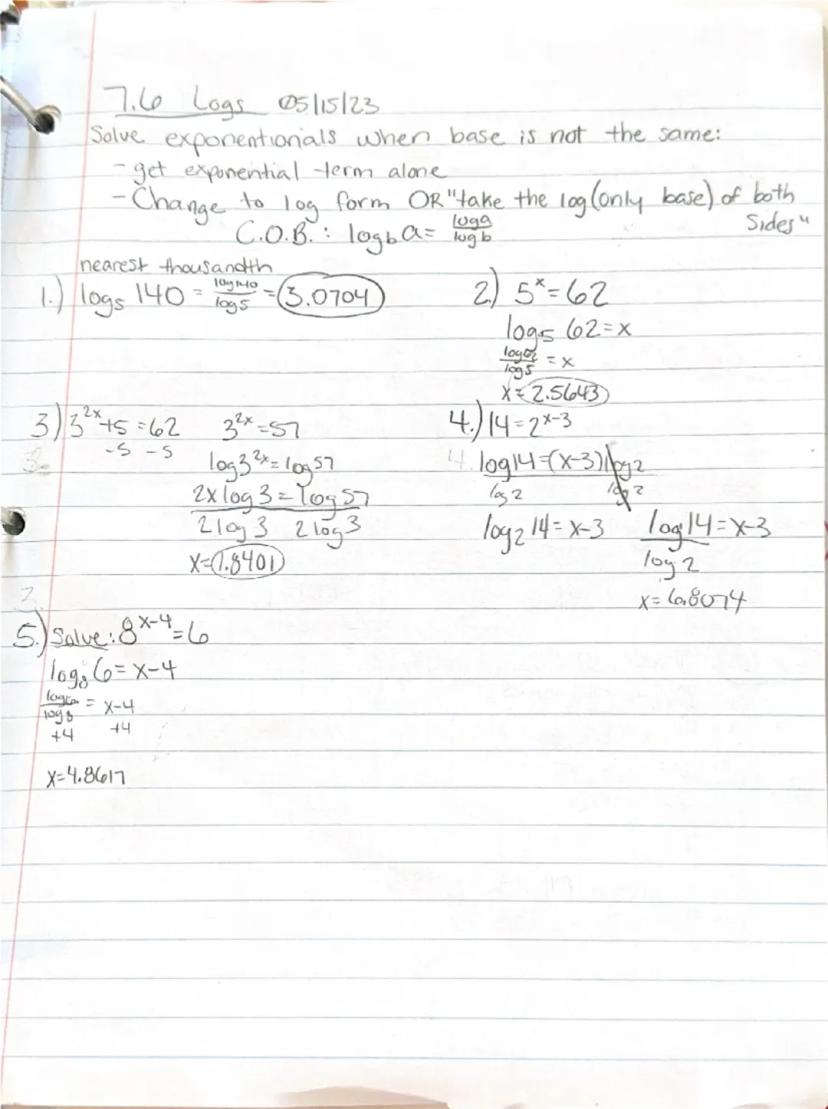 7.6 Logs 05/15/23
Solve exponentionals when base is not the same:
- get exponential term alone
- Change to log form OR "take the log (only base) of both sides"
C.O.B.: log_b a = log a / log b
nearest thousandth
1.) log_5 140 = log 140 / log 5 = 3.0704
2.) 5^x = 62
log_5 62 = x
log 62 / log 5 = x
x = 2.5643
3) 3^2x + 5 = 62
-5 -5
3^2x = 57
log 3^2x = log 57
2x log 3 = log 57
2 log 3 2 log 3
x = 1.8401
4.) 14 = 2^x-3
4. log 14 = (x-3) log 2
log 2 log 2
log_2 14 = x-3
log 14 / log 2 = x-3
x = 6.8074
5.) Solve: 8^x-4 = 6
log_8 6 = x-4
log 6 / log 8 = x-4
+4 +4
x = 4.8617